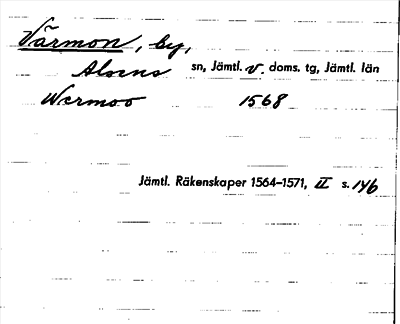 Värmon, by,
Alsens sn, Jämtl. v. doms. tg, Jämtl. län
Wermoo 1568
Jämtl. Räkenskaper 1564-1571, II s. 146